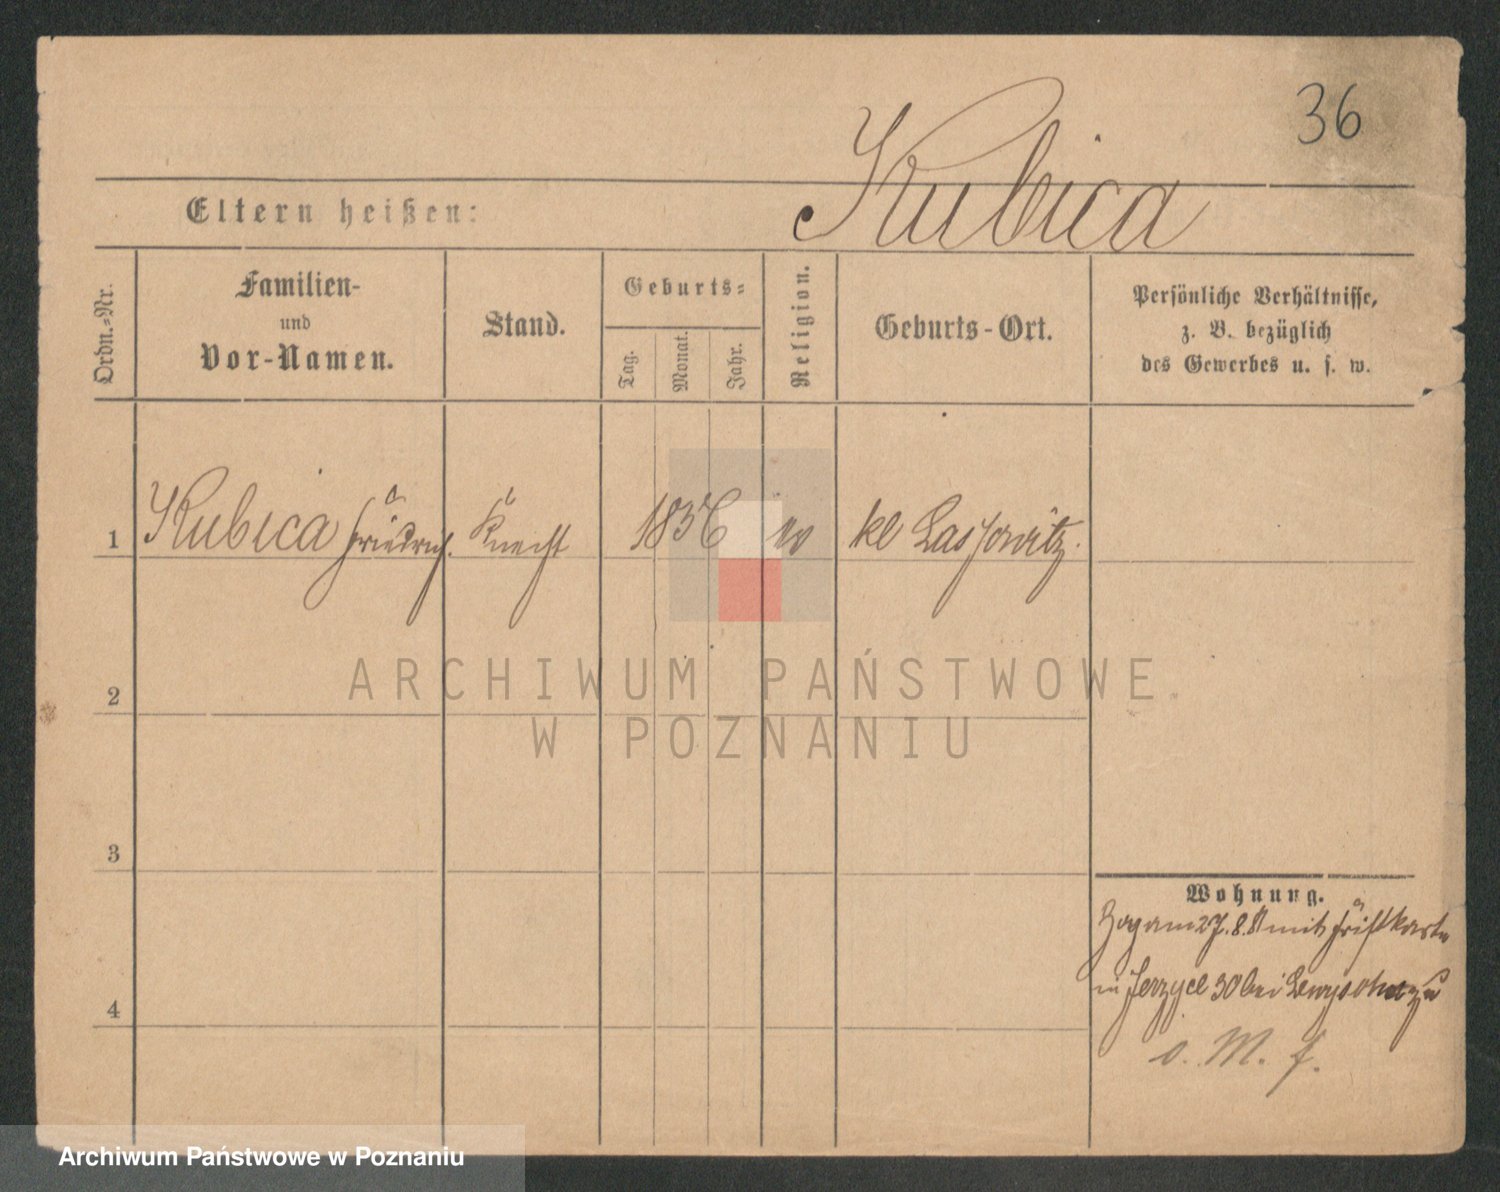 36
Kubica
Eltern heißen:
Ordn.-Nr.
Familien-
und
Vor-Namen.
Stand.
Geburts-
Tag.
Monat.
Jahr.
Religion.
Geburts-Ort.
Persönliche Verhältnisse,
z. B. bezüglich
des Gewerbes u. s. w.
1 Kubica Friedrich. Knecht 1836 kl Lassowitz.
2
ARCHIWUM PAŃSTWOWE
W POZNANIU
3
4
Wohnung.
Zog am 27.8. mit
in 30 bei zu
o. M. f.
Archiwum Państwowe w Poznaniu